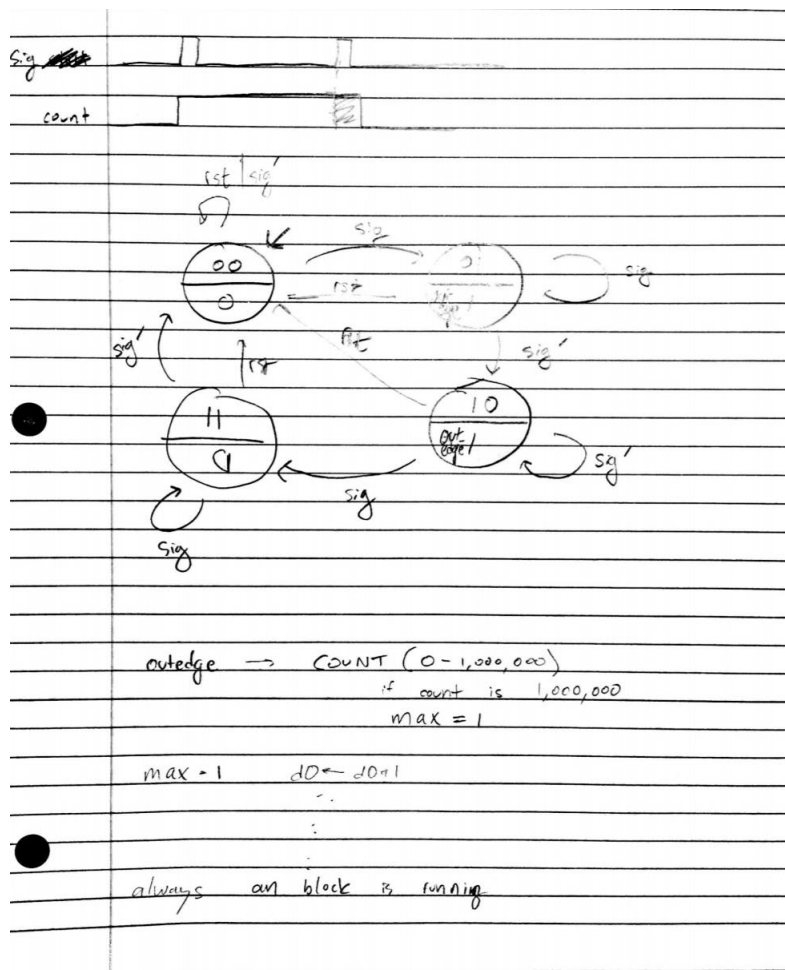 sig
count
rst | sig'
sig
00
0
01
out
edge 1
sig
rst
rst
sig'
rst
sig'
11
0
10
out
edge 1
sig'
sig
sig
outedge → COUNT (0 - 1,000,000)
if count is 1,000,000
max = 1
max = 1 d0 ← d0+1
:
:
always an block is running